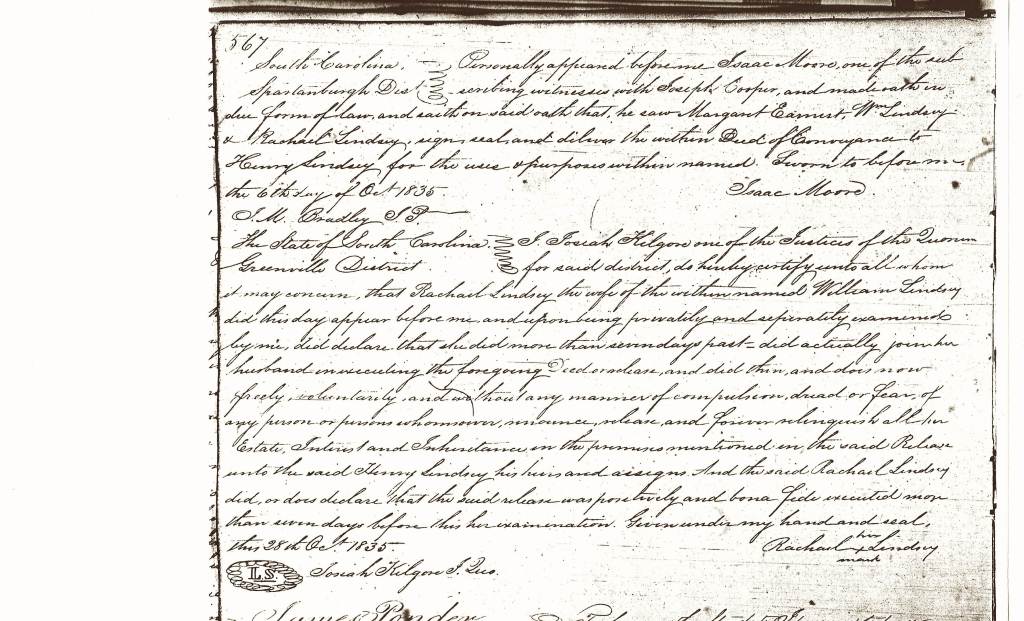 567
South Carolina. Personally appeared before me Isaac Moore, one of the sub
Spartanburgh Dist. scribing witnesses with Joseph Cooper, and made oath in
due form of law, and saith on said oath that, he saw Margaret Earnest, Wm Lindsey
& Rachael Lindsey, sign, seal, and deliver the within Deed of Conveyance to
Henry Lindsey for the uses & purposes within named. Sworn to before me
the 6th day of Oct 1835. Isaac Moore.
J.M. Bradley J.P.
The State of South Carolina. I, Josiah Kilgore one of the Justices of the Quorum
Greenville District. for said district, do hereby certify unto all whom
it may concern, that Rachael Lindsey the wife of the within named William Lindsey
did this day appear before me, and upon being privately and seperately examined
by me, did declare that she did more than seven days past - did actually join her
husband in executing the foregoing Deed or release, and did then, and does now
freely, voluntarily, and without any manner of compulsion, dread or fear, of
any person or persons whomsoever, renounce, release, and forever relinquish all her
Estate, Interest and Inheritance in the premises mentioned in, the said Release
unto the said Henry Lindsey his heirs and assigns. And the said Rachael Lindsey
did, or does declare that the said release was positively and bona fide executed more
than seven days before this her examination. Given under my hand and seal,
this 28th Oct. 1835. Rachael her x mark Lindsey
L.S. Josiah Kilgore J. Quo.